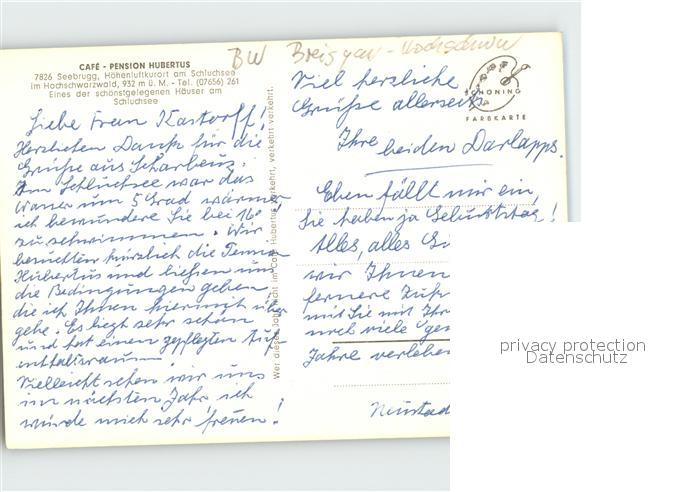 CAFÉ - PENSION HUBERTUS
7826 Seebrugg, Höhenluftkurort am Schluchsee
im Hochschwarzwald, 932 m ü. M. - Tel. (07656) 261
Eines der schönstgelegenen Häuser am
Schluchsee
BW Breisgau-Hochschww
SCHÖNING
FARBKARTE
Liebe Frau Kastorff!
Herzlichen Dank für die
Grüße aus Scharbeuz.
Im Schluchsee war das
Wasser um 5 Grad wärmer,
ich bewundere Sie bei 16°
zu schwimmen. Wir
besuchten kürzlich die Pension
Hubertus und ließen uns
die Bedingungen geben,
die ich Ihnen hiermit über
gebe. Es liegt sehr schön
und hat einen gepflegten Auf-
enthaltsraum.
Vielleicht sehen wir uns
im nächsten Jahr, ich
würde mich sehr freuen!
Wer dieses Jahr nicht im Café Hubertus verkehrt, verkehrt verkehrt.
Viel herzliche
Grüße allerseits
Ihre beiden Darlapps.
Eben fällt mir ein,
Sie haben ja Geburtstag!
Alles, alles
wir Ihnen
fernere
mit Sie mit
noch viele
Jahre verleben
Neustad
privacy protection
Datenschutz